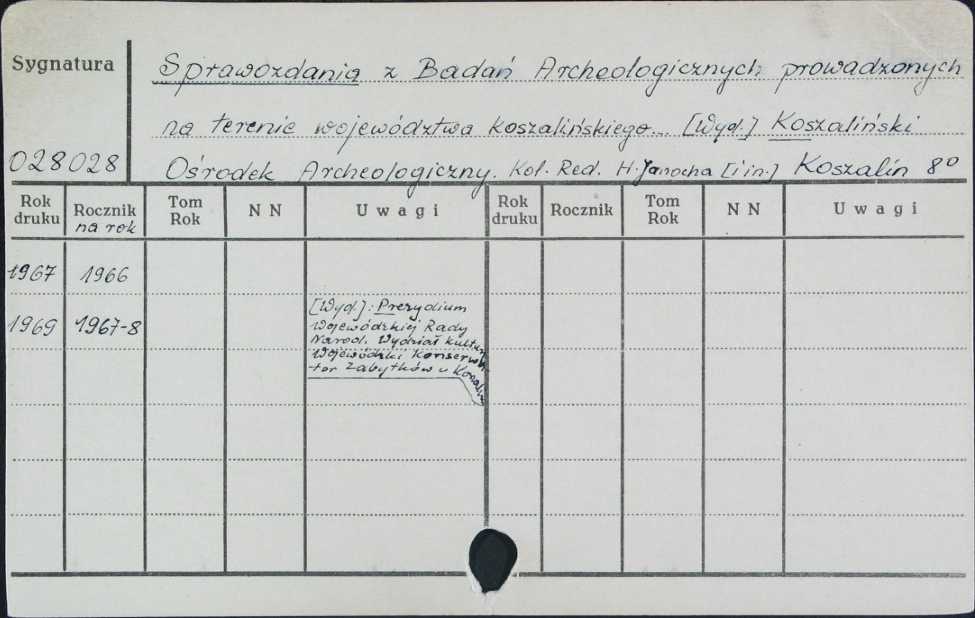 Sygnatura
Sprawozdania z Badań Archeologicznych prowadzonych
na terenie województwa koszalińskiego... [Wyd.] Koszaliński
028028
Ośrodek Archeologiczny. Kol. Red. H. Janocha [i in.] Koszalin 8º
Rok druku Rocznik na rok Tom Rok NN Uwagi Rok druku Rocznik Tom Rok NN Uwagi
1967 1966
1969 1967-8
[Wyd.]: Prezydium
Wojewódzkiej Rady
Narod. Wydział Kultury
Wojewódzki Konserwa-
tor Zabytków w Koszalinie